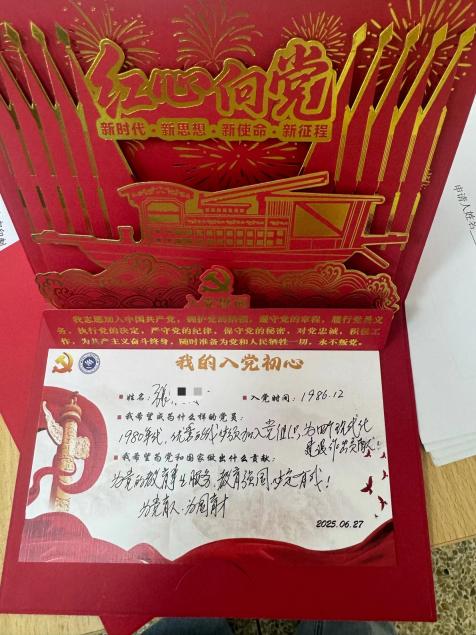 红心向党
新时代·新思想·新使命·新征程
我志愿加入中国共产党，拥护党的纲领，遵守党的章程，履行党员义
务，执行党的决定，严守党的纪律，保守党的秘密，对党忠诚，积极工
作，为共产主义奋斗终身，随时准备为党和人民牺牲一切，永不叛党。
我的入党初心
姓名：张
入党时间：1986.12
我希望成为什么样的党员：
1980年代，优秀的我必须加入党组织，为四个现代化
建设作出贡献！
我希望为党和国家做出什么贡献：
为党的教育事业服务，教育强国，必定有我！
为党育人，为国育才
2025.06.27
申请人姓名